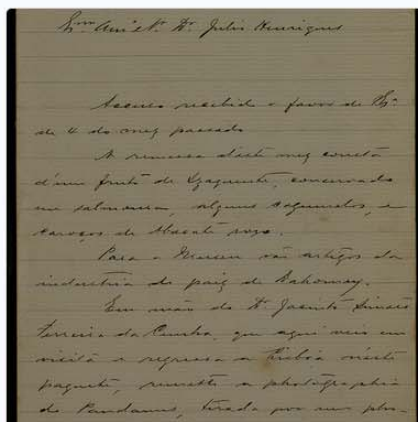 Exmo Amo e Sr. Dr. Julio Henriques
Accuso recebido o favor de V. Exa
de 4 do mez passado
A remessa d'este mez consta
d'um fruto de Izaquente, conservado
em salmoura, alguns saguinolos, e
caroços de Abacate roxo.
Para o Museu vão artigos da
industria do paiz de Dahomey.
Em mão do Dr. Jacintho Simões
Ferreira da Cunha, que aqui veio em
visita e regressa a Lisboa n'este
paquete, remetto a photographia
do Pandanus, tirada por um pho-